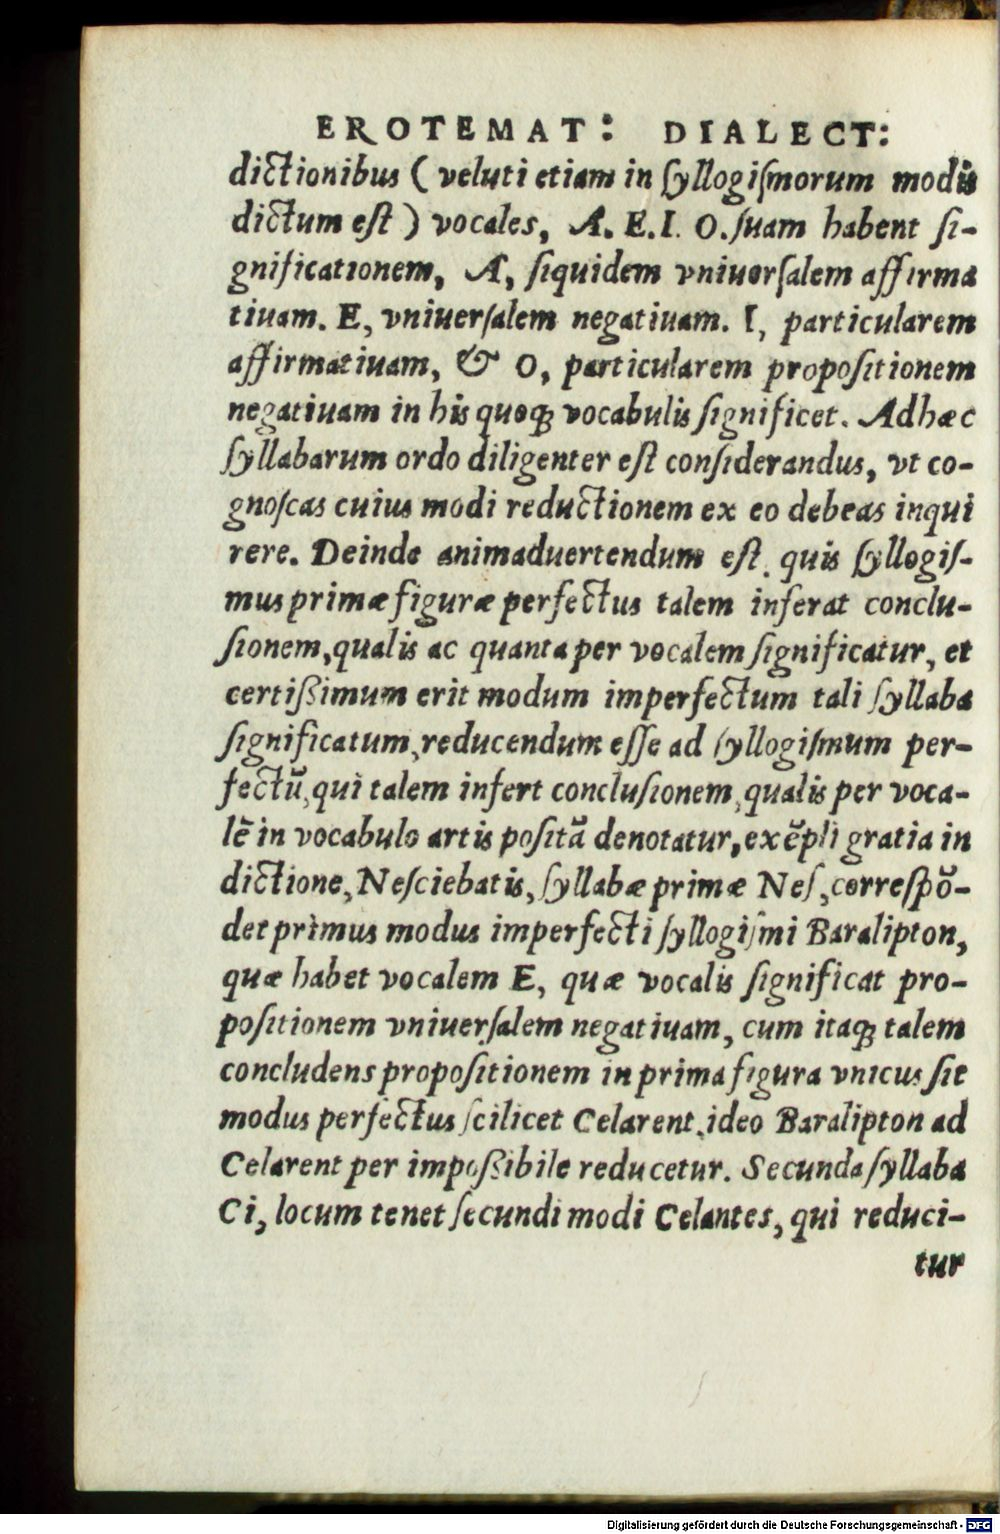 EROTEMAT: DIALECT:
dictionibus ( veluti etiam in ſyllogiſmorum modis
dictum eſt ) vocales, A. E. I. O. ſuam habent ſi-
gnificationem, A, ſiquidem vniuerſalem affirma
tiuam. E, vniuerſalem negatiuam. I, particularem
affirmatiuam, & O, particularem propoſitionem
negatiuam in his quoqꝫ vocabulis ſignificet. Adhæc
ſyllabarum ordo diligenter eſt conſiderandus, vt co-
gnoſcas cuius modi reductionem ex eo debeas inqui
rere. Deinde animaduertendum eſt, quis ſyllogiſ-
mus primæ figuræ perfectus talem inferat conclu-
ſionem, qualis ac quanta per vocalem ſignificatur, et
certißimum erit modum imperfectum tali ſyllaba
ſignificatum, reducendum eſſe ad ſyllogiſmum per-
fectũ, qui talem infert concluſionem, qualis per voca-
lẽ in vocabulo artis poſitã denotatur, exẽpli gratia in
dictione, Neſciebatis, ſyllabæ primæ Neſ, correſpõ-
det primus modus imperfecti ſyllogiſmi Baralipton,
quæ habet vocalem E, quæ vocalis ſignificat pro-
poſitionem vniuerſalem negatiuam, cum itaqꝫ talem
concludens propoſitionem in prima figura vnicus ſit
modus perfectus ſcilicet Celarent, ideo Baralipton ad
Celarent per impoßibile reducetur. Secunda ſyllaba
Ci, locum tenet ſecundi modi Celantes, qui reduci-
tur
Digitalisierung gefördert durch die Deutsche Forschungsgemeinschaft - DFG